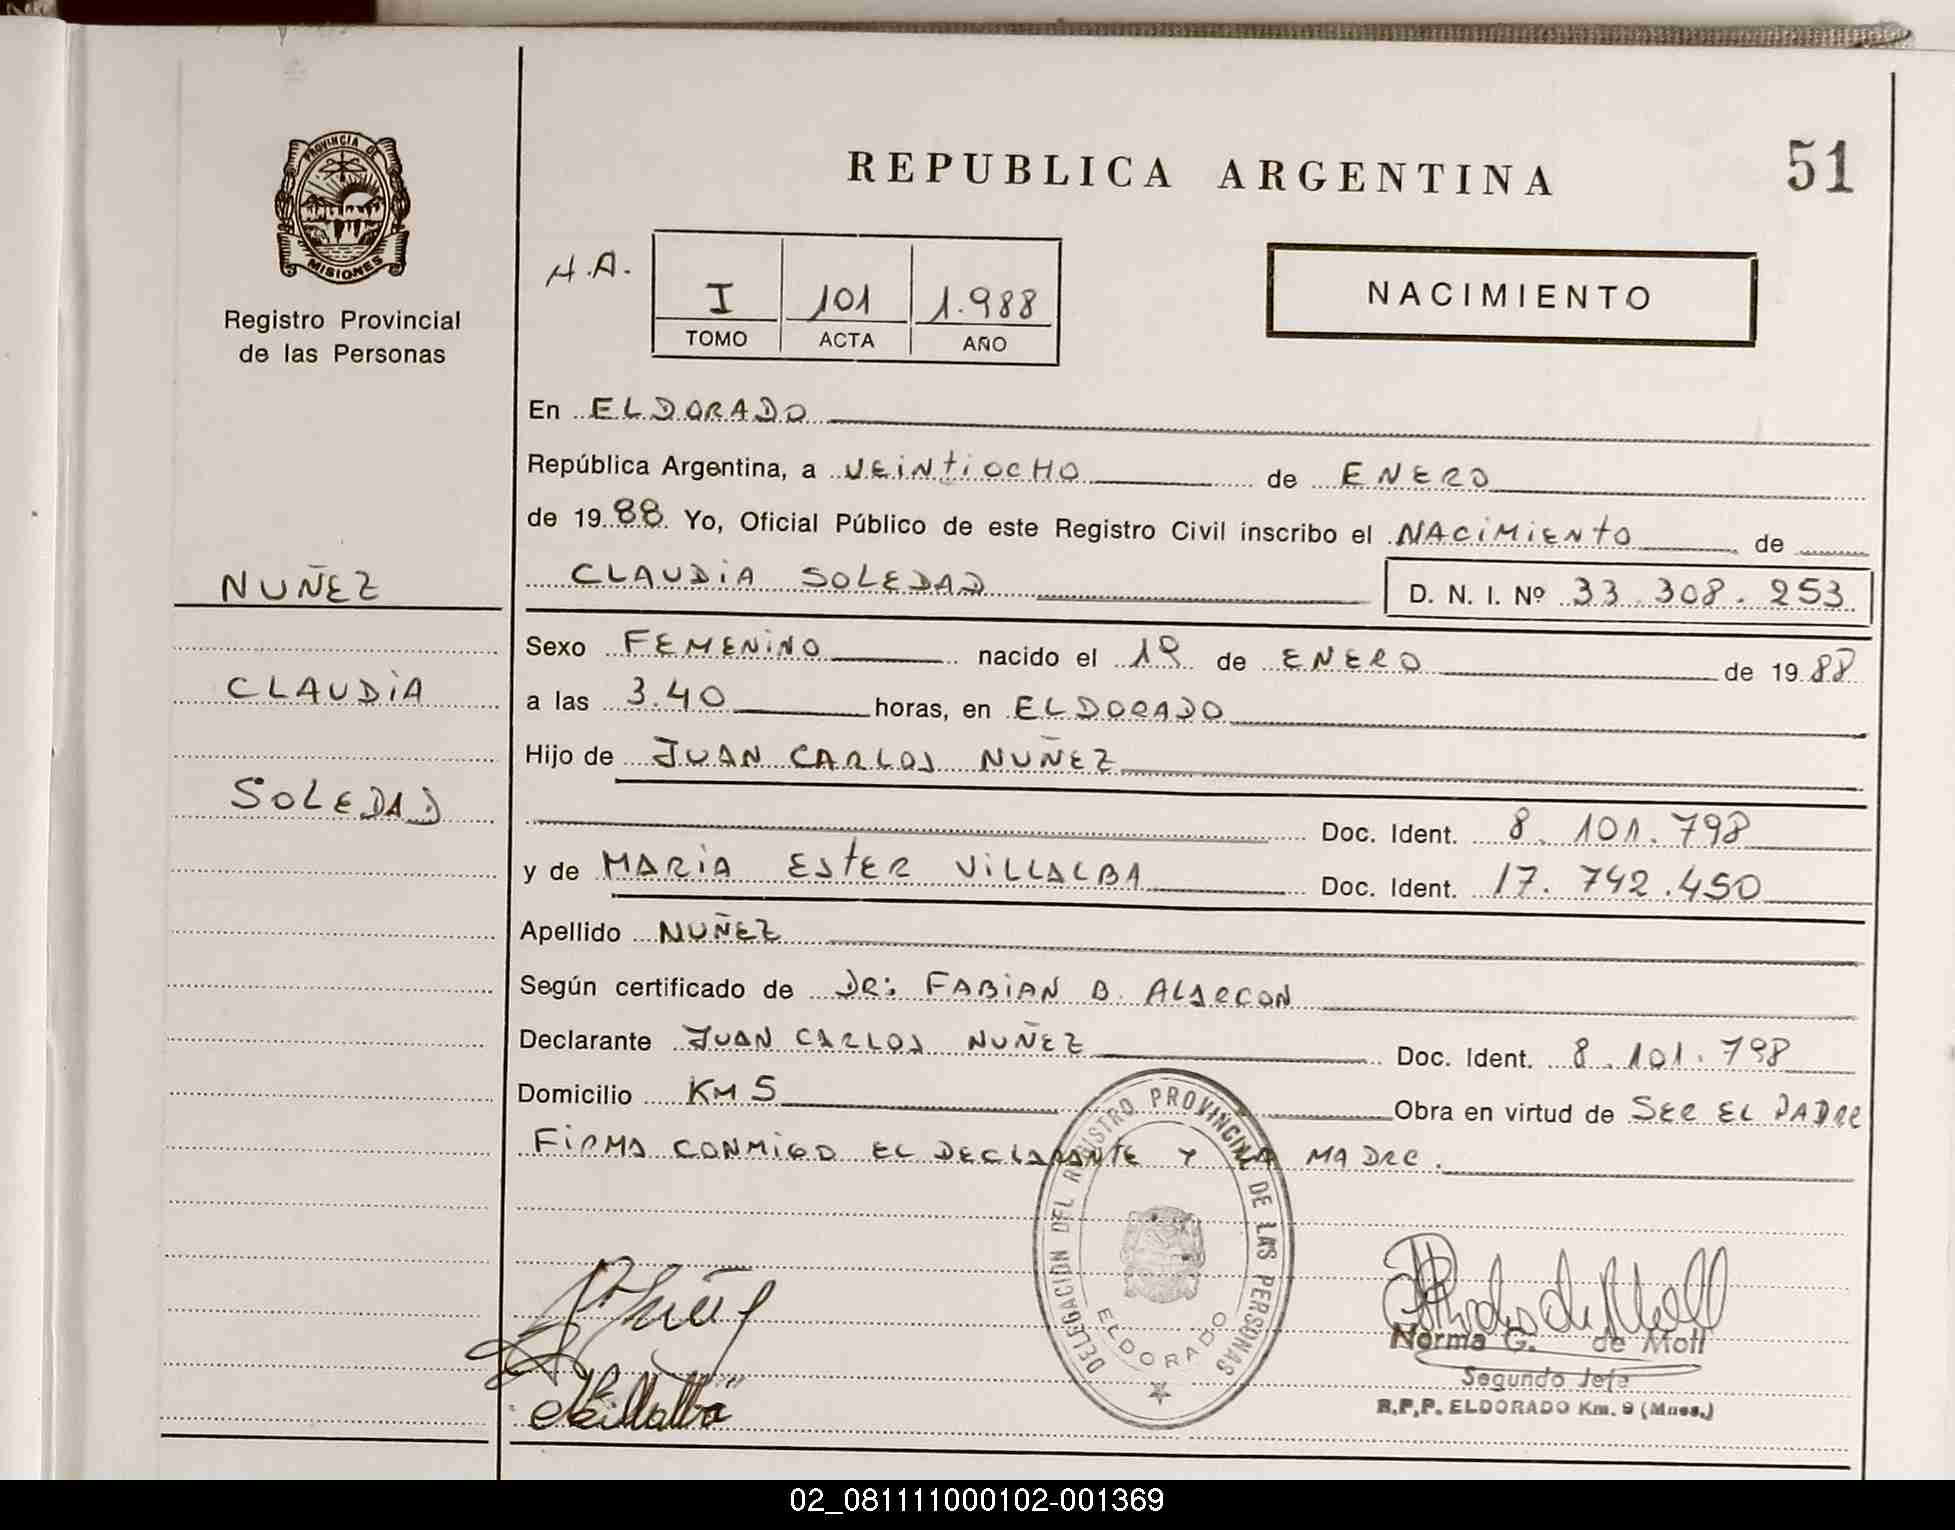 51
REPUBLICA ARGENTINA
PROVINCIA DE
MISIONES
Registro Provincial
de las Personas
H.A.
I 101 1.988
TOMO ACTA AÑO
NACIMIENTO
En ELDORADO
República Argentina, a VEINTIOCHO de ENERO
de 1988 Yo, Oficial Público de este Registro Civil inscribo el NACIMIENTO de
CLAUDIA SOLEDAD D. N. I. Nº 33.308.253
NUÑEZ
CLAUDIA
SOLEDAD
Sexo FEMENINO nacido el 19 de ENERO de 1988
a las 3.40 horas, en ELDORADO
Hijo de JUAN CARLOS NUÑEZ
Doc. Ident. 8.101.798
y de MARIA ESTER VILLALBA Doc. Ident. 17.742.450
Apellido NUÑEZ
Según certificado de DR: FABIAN B. ALARCON
Declarante JUAN CARLOS NUÑEZ Doc. Ident. 8.101.798
Domicilio KM 5 Obra en virtud de SER EL PADRE
FIRMA CONMIGO EL DECLARANTE Y LA MADRE.
DELEGACION DEL REGISTRO PROVINCIAL DE LAS PERSONAS
ELDORADO
Norma G. de Moll
Segundo Jefe
R.P.P. ELDORADO Km. 9 (Mnes.)
02_081111000102-001369